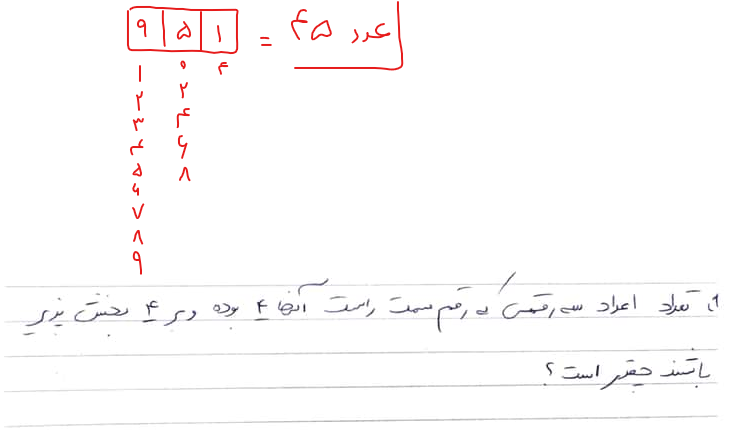 ۹ ۵ ۱ = ۴۵ عدد
۱ ۰ ۴
۲ ۲
۳ ۴
۴ ۶
۵ ۸
۶
۷
۸
۹
تعداد اعداد سه رقمی که رقم سمت راست آنها ۴ بوده و بر ۴ بخش پذیر
باشند چقدر است ؟